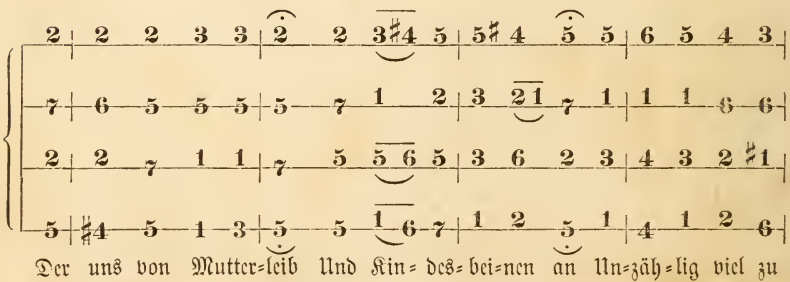 2 | 2 2 3 3 | 2 2 3♯4 5 | 5♯ 4 5 5 | 6 5 4 3
7 | 6 5 5 5 | 5 7 1 2 | 3 2 1 7 1 | 1 1 6 6
2 | 2 7 1 1 | 7 5 5 6 5 | 3 6 2 3 | 4 3 2 ♯1
5 | ♯4 5 1 3 | 5 5 1 6 7 | 1 2 5 1 | 4 1 2 6
Der uns von Mutter-leib Und Kin- des-bei-nen an Un-zäh-lig viel zu